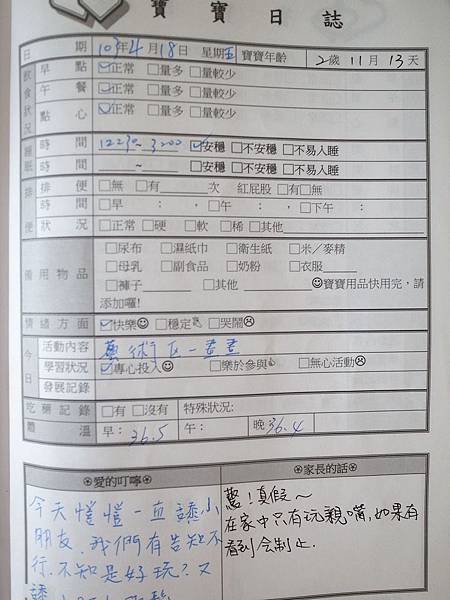 寶寶日誌
日期 103年4月18日 星期五 寶寶年齡 2歲11月13天
飲食狀況
早點 ☑正常 □量多 □量較少
午餐 ☑正常 □量多 □量較少
點心 ☑正常 □量多 □量較少
睡眠
時間 1223~3200 ☑安穩 □不安穩 □不易入睡
時間 ~ □安穩 □不安穩 □不易入睡
排便
排便 □無 □有 次 紅屁股 □有□無
時間 □早 : , □午 : , □下午 :
狀況 □正常 □硬 □軟 □稀 □其他
備用物品
□尿布 □濕紙巾 □衛生紙 □米/麥精
□母乳 □副食品 □奶粉 □衣服
□褲子 □其他 ☺寶寶用品快用完,請
添加囉!
情緒方面 ☑快樂☺ □穩定 □哭鬧☹
今日
活動內容 藝術區-畫畫
學習狀況 ☑專心投入☺ □樂於參與 □無心活動☹
發展記錄
吃藥記錄 □有 □沒有 特殊狀況:
體溫 早: 36.5 午: 晚36.4
愛的叮嚀
今天愷愷一直 小
朋友,我們有告知不
行,不知是好玩?又
家長的話
驚!真假~
在家中只有玩親嘴,如果有
看到会制止.